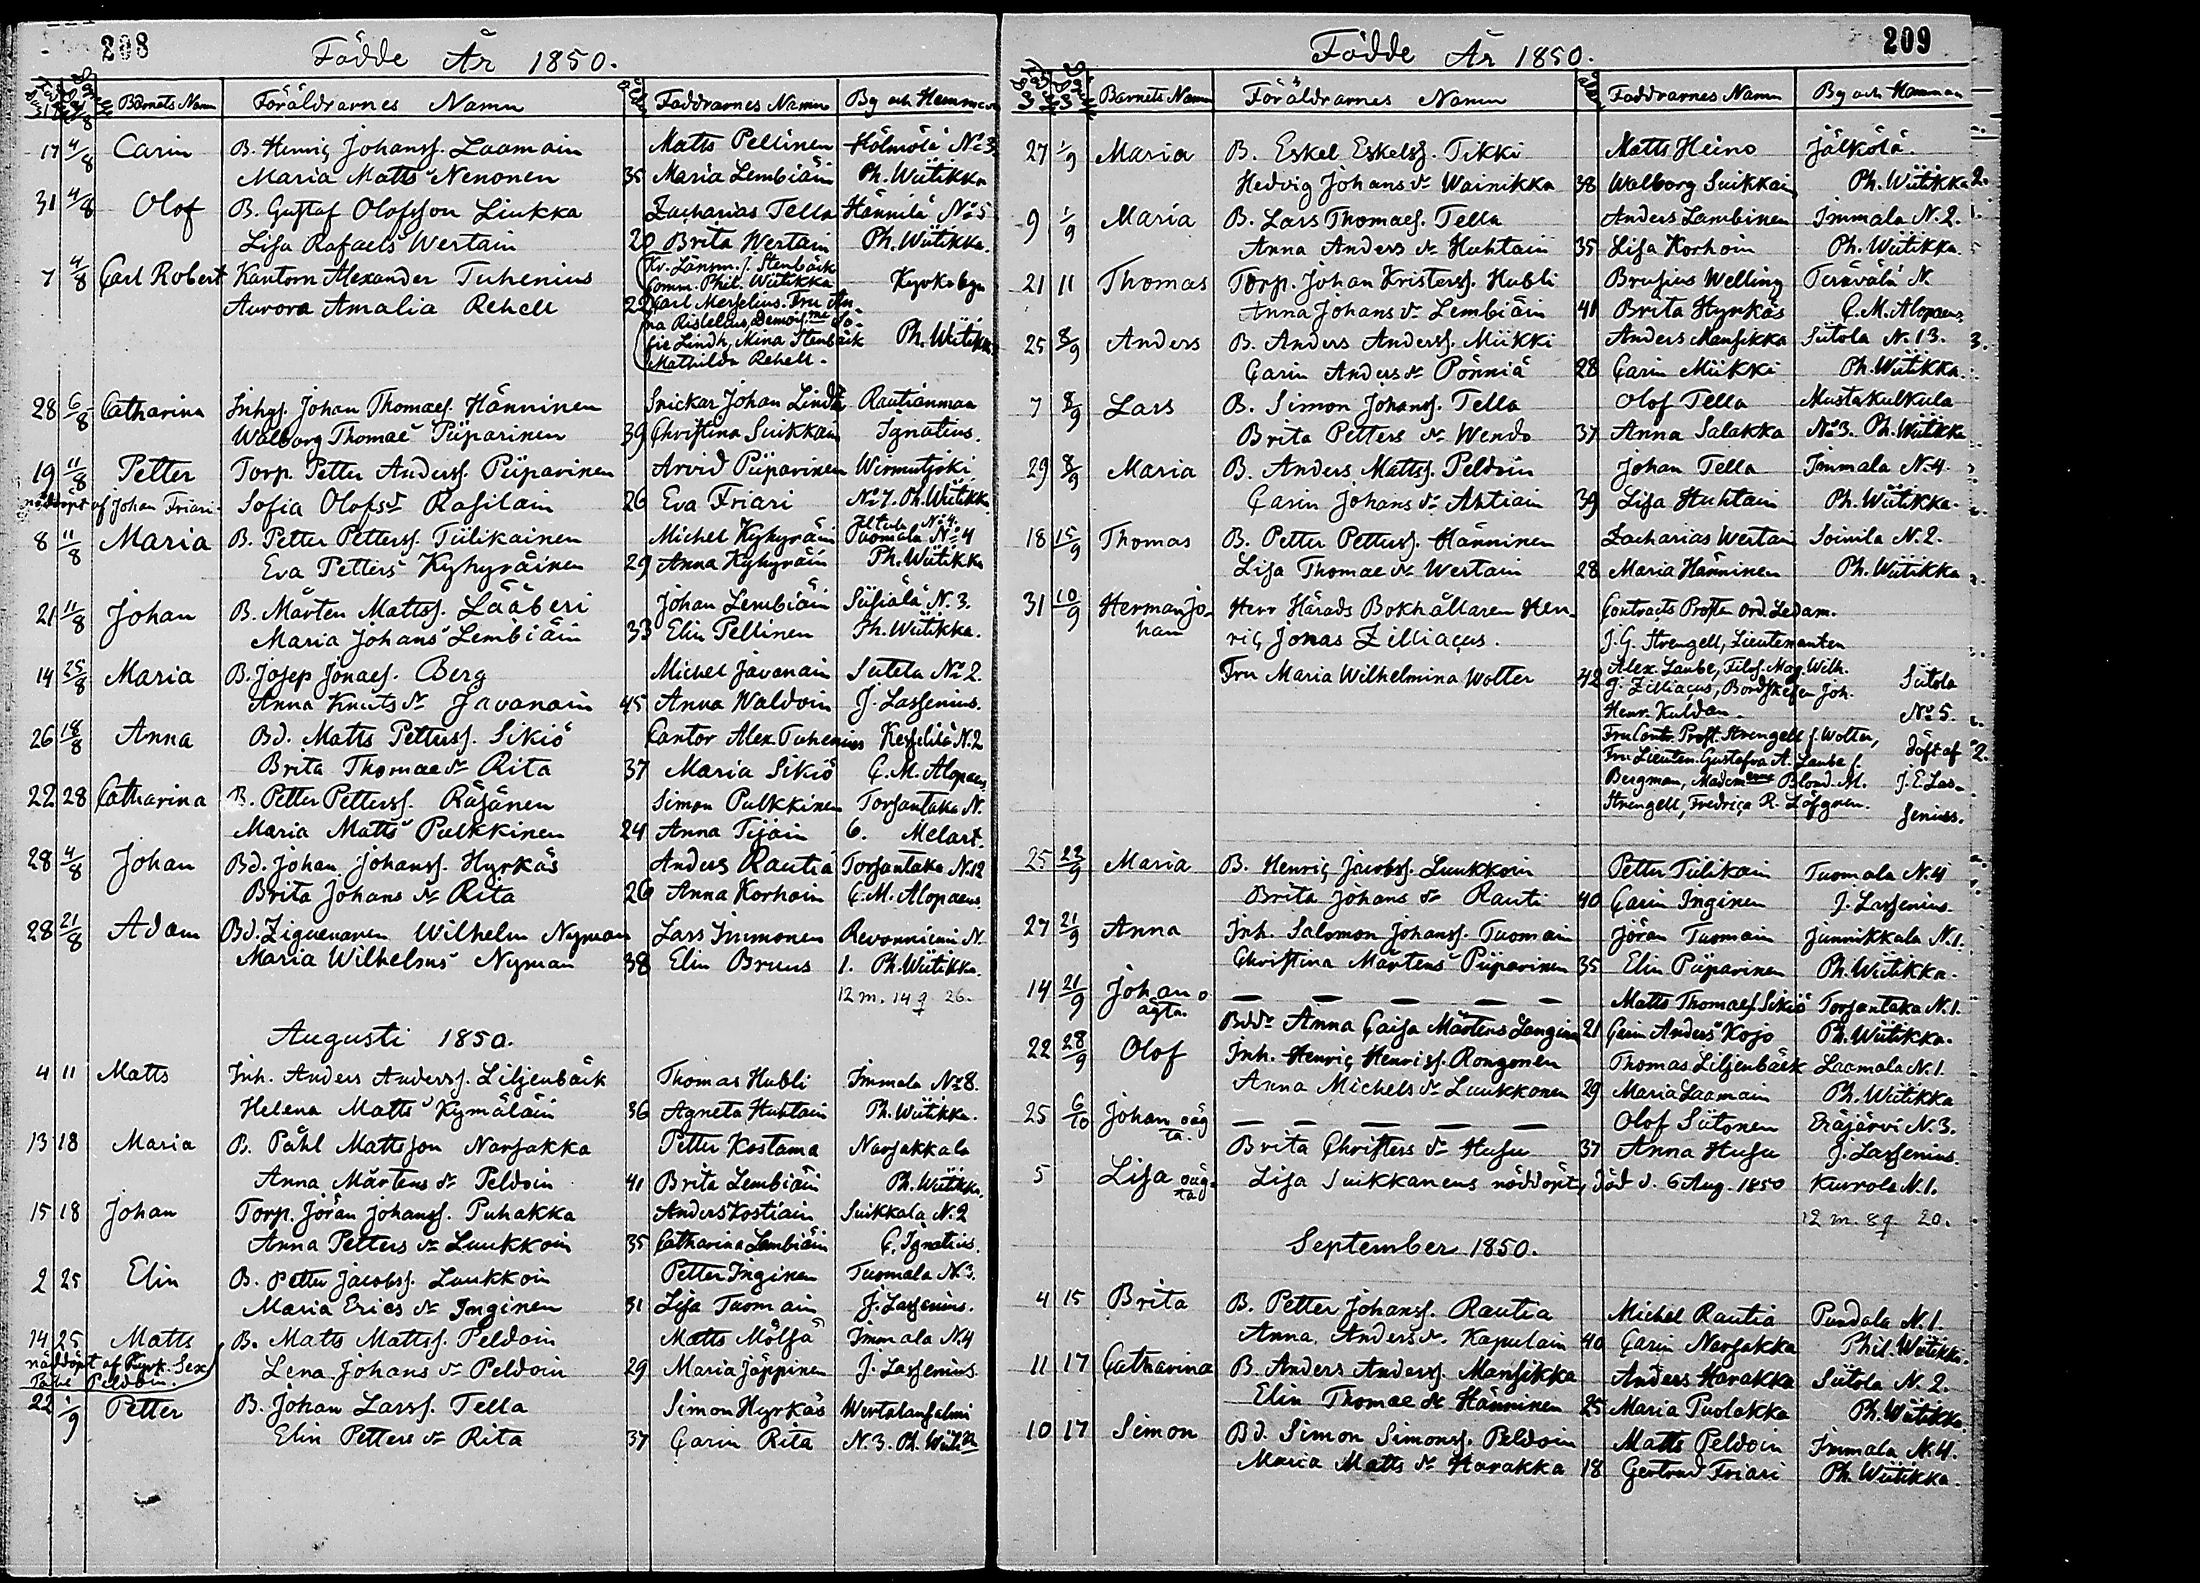 208
Födde År 1850.
Barnets Namn Föräldrarnes Namn Faddrarnes Namn By och Hemman
17 4/8 Carin B. Henriç Johansſ. Laamain Matts Pellinen Hölmölä No 3
Maria Matts Nenonen 35 Maria Lembiäin Ph. Wiitikka
31 4/8 Olof B. Gustaf Olofsson Liukka Zacharias Tella Hännilä No 5
Lisa Rafaels Wertain 20 Brita Wertain Ph. Wiitikka.
7 4/8 Carl Robert Kantorn Alexander Tuhenius Kr. Länsm. J. Stenbäck
Comm. Phil. Wiitikka Kyrkobyn
Aurora Amalia Rehell 22 Carl Merselius. Fru An-
na Ristelius, Demois. me So-
fie Lindh, Mina Stenbäck Ph. Wiitikka
Mathilda Rehell.
28 6/8 Catharina Inhys. Johan Thomaes. Hänninen Snickar Johan Lindh Rautianmaa
Walborg Thomae Piiparinen 39 Christina Suikkain Ignatius.
19 11/8 Petter Torp. Petter Anderss. Piiparinen Arvid Piiparinen Wirmutjoki
nöddöpt af Johan Friari. Sofia Olofs dr Rasilain 26 Eva Friari No 7. Ph. Wiitikka
8 11/8 Maria B. Petter Petterss. Tiilikainen Michel Kyhyräin Tuomala No 4
Eva Petters Kyhyräinen 29 Anna Kyhyräin Ph. Wiitikka
21 11/8 Johan B. Mårten Mattss. Lääberi Johan Lembiäin Siisiälä N. 3.
Maria Johans Lembiäin 33 Elin Pellinen Ph. Wiitikka.
14 25/8 Maria B. Josep Jonaes. Berg Michel Javanain Sutela No 2.
Anna Knuts dr Javanain 45 Anna Waldoin J. Lassenius.
26 18/8 Anna Bd. Matts Petterss. Sikiö Cantor Alex. Tuhenius Kesselilä N. 2
Brita Thomae dr Rita 37 Maria Sikiö C. M. Alopaeus
22 28 Catharina B. Petter Petterss. Räsänen Simon Pulkkinen Torsantaka N.
Maria Matts Pulkkinen 24 Anna Tijäin 6. Melart.
28 4/8 Johan Bd. Johan Johanss. Hyrkäs Anders Rautia Torsantaka N. 12
Brita Johans dr Rita 26 Anna Korhoin C. M. Alopaeus
28 21/8 Adam Bd. Ziguenaren Wilhelm Nyman Lars Immonen Revonniemi N.
Maria Wilhelms Nyman 38 Elin Bruus 1. Ph. Wiitikka.
12 m. 14 q 26.
Augusti 1850.
4 11 Matts Inh. Anders Anderss. Liljenbäck Thomas Hubli Immala No 8.
Helena Matts Kymäläin 36 Agneta Huhtain Ph. Wiitikka.
13 18 Maria B. Påhl Mattsson Narsakka Petter Kostama Narsakkala
Anna Mårtens dr Peldoin 41 Brita Lembiäin Ph. Wiitikka.
15 18 Johan Torp. Jöran Johanss. Puhakka Anders Kostiain Suikkala N. 2
Anna Petters dr Luukkoin 35 Catharina Lembiäin C. Ignatius.
2 25 Elin B. Petter Jacobss. Luukkoin Petter Inginen Tuomala N. 3.
Maria Erics dr Inginen 31 Lisa Tuomain J. Lassenius.
14 25 Matts B. Matts Mattss. Peldoin Matts Mölsä Immala N. 4
nöddöpt af Lena Johans dr Peldoin 29 Maria Jäppinen J. Lassenius
Peldoin.
22 1/9 Petter B. Johan Larss. Tella Simon Hyrkäs Wertalansalmi
Elin Petters dr Rita 37 Carin Rita N. 3. Ph. Wiitikka
209
Födde År 1850.
Barnets Namn Föräldrarnes Namn Faddrarnes Namn By och Hemman
27 1/9 Maria B. Eskel Eskelss. Tikki Matts Heino Jälkölä.
Hedvig Johans dr Wainikka 38 Walborg Suikkain Ph. Wiitikka
9 1/9 Maria B. Lars Thomaes. Tella Anders Lambinen Immala N. 2.
Anna Anders dr Huhtain 35 Lisa Korhoin Ph. Wiitikka.
21 11 Thomas Torp. Johan Kristerss. Hubli Brusius Welling Terävälä N.
Anna Johans dr Lembiäin 41 Brita Hyrkäs C. M. Alopaeus
25 8/9 Anders B. Anders Anderss. Miikki Anders Mansikka Siitola N. 13.
Carin Anders dr Pönniä 28 Carin Miikki Ph. Wiitikka.
7 8/9 Lars B. Simon Johanss. Tella Olof Tella Mustakulkula
Brita Petters dr Wendo 37 Anna Salakka No 3. Ph. Wiitikka
29 8/9 Maria B. Anders Mattss. Peldoin Johan Tella Immala N. 4.
Carin Johans dr Ahtiain 39 Lisa Huhtain Ph. Wiitikka.
18 15/9 Thomas B. Petter Petterss. Hänninen Zacharias Wertain Soinila N. 2.
Lisa Thomae dr Wertain 28 Maria Hänninen Ph. Wiitikka
31 10/9 Herman Jo- Herr Härads Bokhållaren Hen- Contracts Prosten ord. Ledam.
han riç Jonas Zilliaçus. J. G. Strengell, Lieutenanten
Fru Maria Wilhelmina Wolter 42 Alex. Laube, Filos. Mag. Wilh.
J. Zilliacus, Bordskefen Joh. Siitola
Henr. Kuldan. No 5.
Fru Contr. Prost. Strengell f. Wolter, döpt af
Fru Lieuten. Gustafva A. Laube f.
Bergman, Blond. M. J. E. Las-
Strengell, Fredriça R. Löfgren. senius.
25 22/9 Maria B. Henriç Jacobss. Luukkoin Petter Tiilikain Tuomala N. 4
Brita Johans dr Rauti 40 Carin Inginen J. Lassenius.
27 21/9 Anna Inh. Salomon Johanss. Tuomain Jöran Tuomain Junnikkala N. 1.
Christina Mårtens Piiparinen 35 Elin Piiparinen Ph. Wiitikka.
14 21/9 Johan o — — — — — Matts Thomaes. Sikiö Torsantaka N. 1.
ägta. Bdd. Anna Caisa Mårtens Langin 21 Carin Anders Kojo Ph. Wiitikka.
22 28/9 Olof Inh. Henriç Henriss. Rongonen Thomas Liljenbäck Laamala N. 1.
Anna Michels dr Luukkonen 29 Maria Laamain Ph. Wiitikka
25 6/10 Johan oäg — — — — — Olof Siitonen Eräjärvi N. 3.
ta. Brita Christers dr Husu 37 Anna Husu J. Lassenius.
5 Lisa oäg- Lisa Suikkanens nöddöpt, död d. 6 Aug. 1850 Kurrola N. 1.
12 m. 8 q 20.
September 1850.
4 15 Brita B. Petter Johanss. Rautia Michel Rautia Pundala N. 1.
Anna Anders dr. Kapulain 40 Carin Narsakka Phil. Wiitikka.
11 17 Catharina B. Anders Anderss. Mansikka Anders Harakka Siitola N. 2.
Elin Thomae dr Hänninen 25 Maria Puolakka Ph. Wiitikka.
10 17 Simon Bd. Simon Simonss. Peldoin Matts Peldoin Immala N. 4.
Maria Matts dr Harakka 18 Gertrud Friari Ph. Wiitikka.